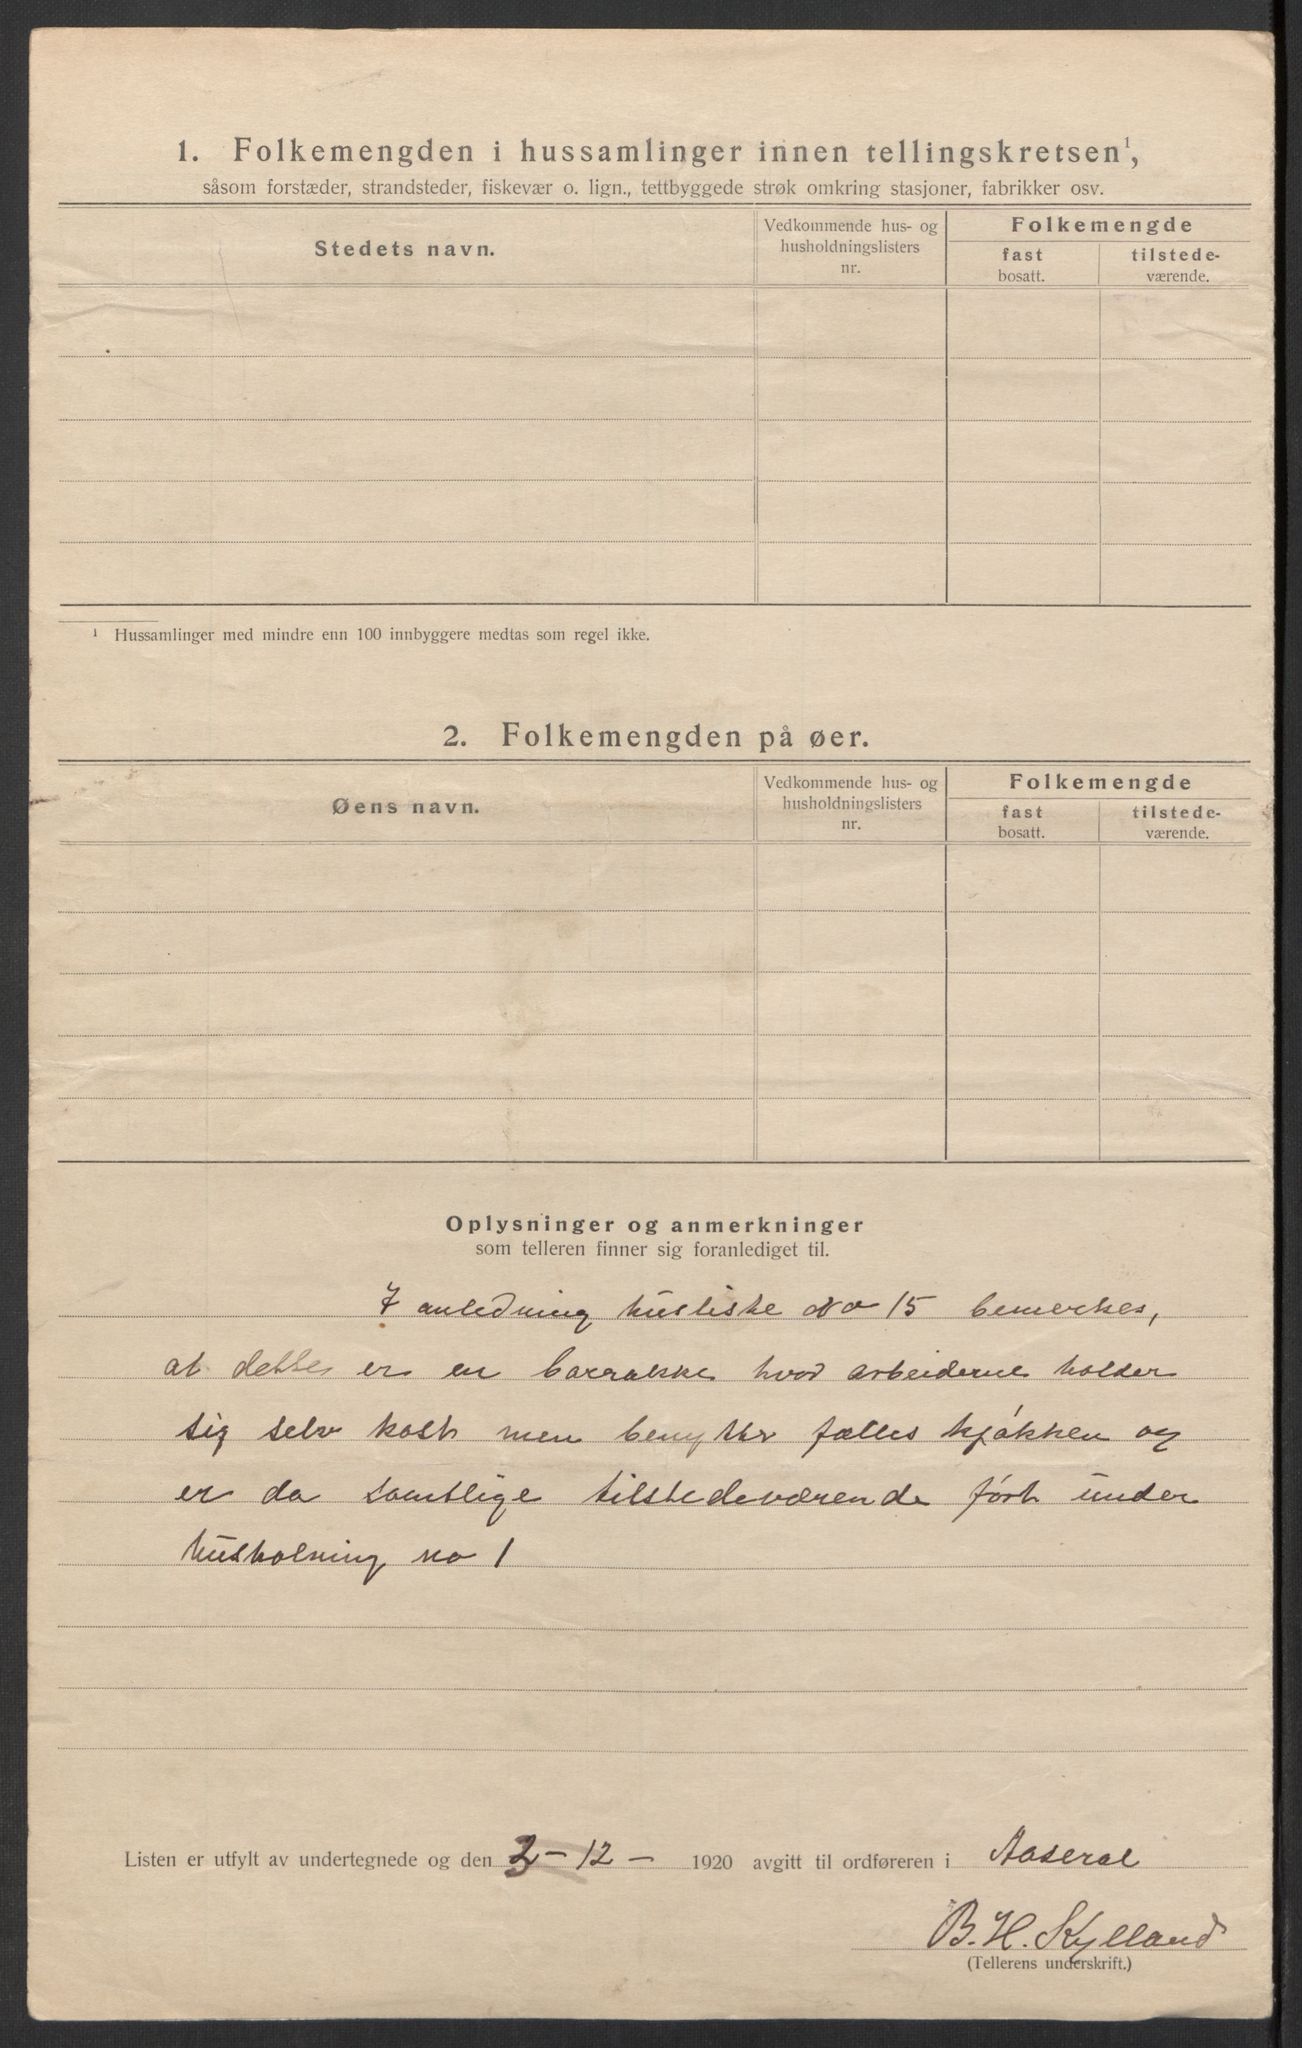 1. Folkemengden i hussamlinger innen tellingskretsen¹,
såsom forstæder, strandsteder, fiskevær o. lign., tettbyggede strøk omkring stasjoner, fabrikker osv.
Stedets navn.
Vedkommende hus- og
husholdningslisters
nr.
Folkemengde
fast
bosatt.
tilstede-
værende.
¹ Hussamlinger med mindre enn 100 innbyggere medtas som regel ikke.
2. Folkemengden på øer.
Øens navn.
Vedkommende hus- og
husholdningslisters
nr.
Folkemengde
fast
bosatt.
tilstede-
værende.
Oplysninger og anmerkninger
som telleren finner sig foranlediget til.
I anledning husliste No 15 bemerkes,
at dette er en barrakke hvor arbeiderne holder
sig selv kost men benytter fælles kjøkken og
er da samtlige tilstedeværende ført under
husholning no 1
Listen er utfylt av undertegnede og den 3-12- 1920 avgitt til ordføreren i Aaseral
B. H. Kylland
(Tellerens underskrift.)